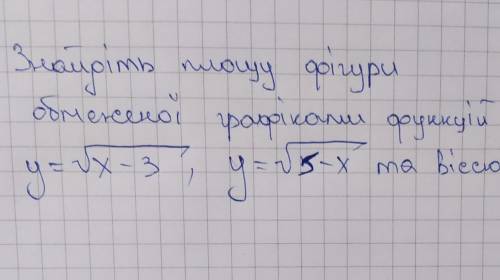 Знайдіть площу фігури
обмеженої графіками функцій
y=√x-3, y=√5-x та віссю